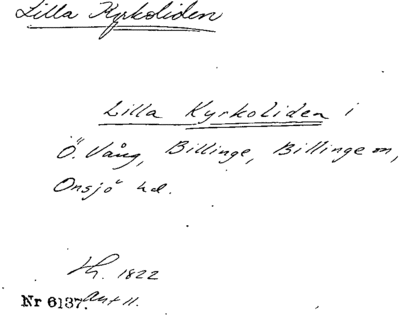 Lilla Kyrkoliden
Lilla Kyrkoliden i
Ö. Vång, Billinge, Billinge sn,
Onsjö hd.
1822
Nr 6137. Akt 11.